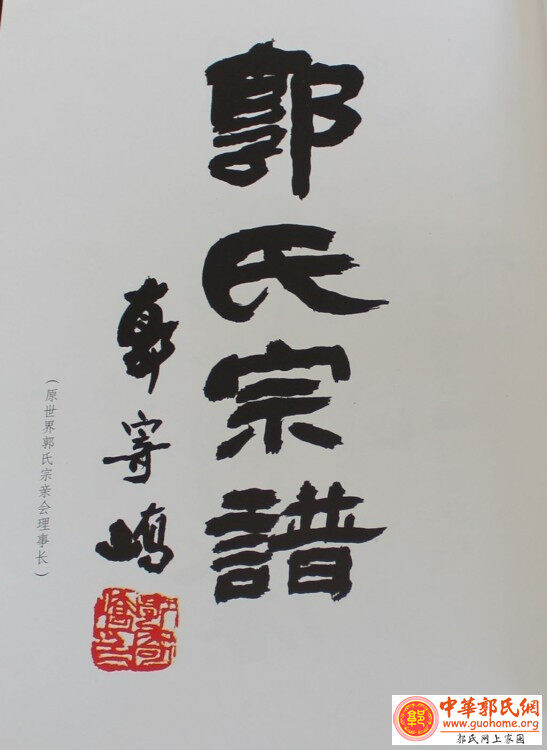 郭氏宗譜
郭寄嶠
（原世界郭氏宗亲会理事长）
中華郭氏網
www.guohome.org
郭氏网上家园